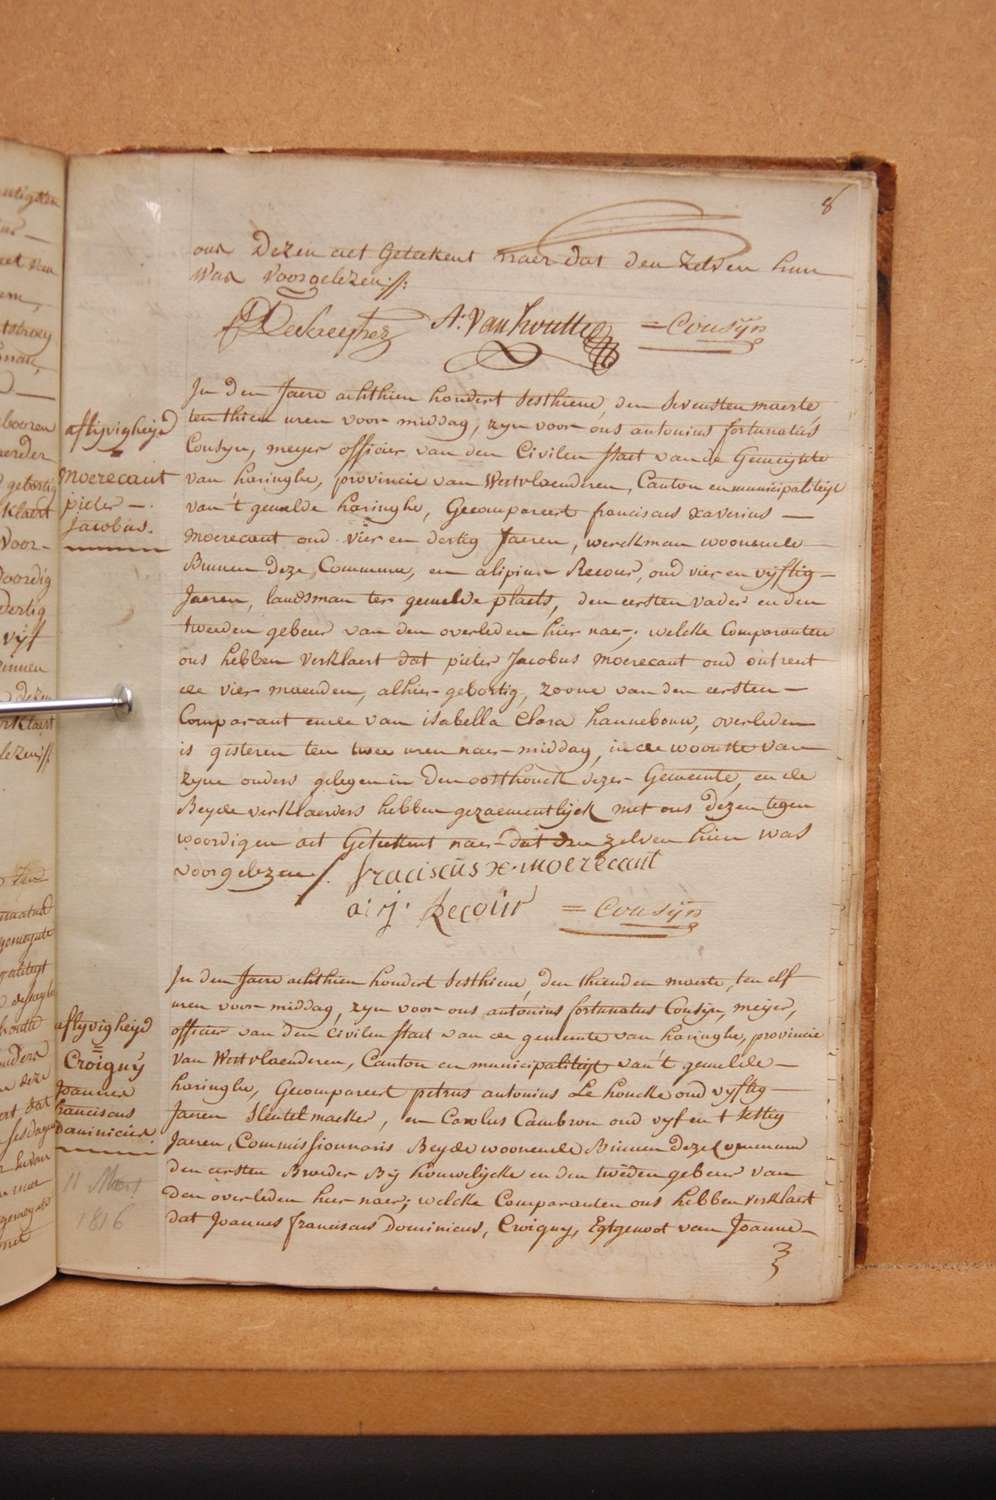 8
ons Dezen act Geteekent naer dat den zelven hun
Was voorgelezen //:
A: Van houtte = Cousÿn
In den Jaere achthien hondert sesthiene, den sevensten maerte
ten thien uren voor middag, zyn voor ons antonius fortunatus
Cousyn, meyer officier van den Civilen staet van de Gemeynte
van haringhe, provincie van Westvlaenderen, Canton en municipaliteyt
van 't gemelde haringhe, Gecompareert franciscus xaverius —
moerecant oud vier en dertig Jaeren, werckman woonende
Binnen deze Commune, en alipius Recour, oud vier en vyftig —
Jaeren, landsman ter gemelde plaets, den eersten vader en den
tweeden gebeur van den overleden hier naer; welcke Comparanten
ons hebben verklaert dat pieter Jacobus moerecant oud ontrent
de vier maenden, alhier gebortig, zoone van den eersten —
Comparant ende van isabella Clara hannebouw, overleden
is gisteren ten twee uren naer-middag, in de woonste van
zyne ouders gelegen in den oosthouck dezer Gemeente, en de
Beyde verklaerders hebben gezaementlyck met ons dezen tegen
woordigen act Geteekent naer dat den zelven hien was
voorgelezen /. fraciscüs x. moerecant
a: j: Recoür = Cousÿn
aflyvigheyd
moerecant
pieter —
Jacobus.
In den Jaere achthien hondert sesthiene, den thienden maerte, ten elf
uren voor middag, zyn voor ons antonius fortunatus Cousyn, meyer,
officier van den civilen staet van de gemeente van haringhe, provincie
van Westvlaenderen, Canton en municipaliteyt van 't gemelde —
haringhe, Gecompareert petrus antonius Le houcke oud vyftig
Jaeren sleutelmaeker, en Carolus Cambron oud vyf en t sestig
Jaeren, Commissionnaris Beyde woonende Binnen deze Commune
den eersten Broeder By houwelycke en den tweeden gebeur van
den overleden hier naer; welcke Comparanten ons hebben verklaert
dat Joannes franciscus dominicus, Croigny, Egtgenoot van Joanne —
aflyvigheyd
Croigny
Joannes
franciscus
Dominicus.
11 Maert
1816
3